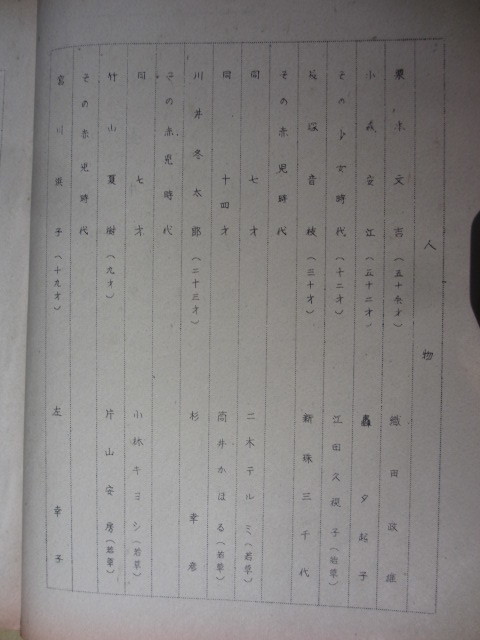 人物
木文吉(五十才) 織田政雄
小 安江(五十二才) 轟夕起子
その少女時代(十二才) 江田久規子(若草)
 音枝(三十才) 新珠三千代
その赤児時代
同 七才 二木テルミ(若草)
同 十四才 筒井かほる(若草)
川井冬太郎(二十三才) 杉幸彦
その赤児時代
同 七才 小林キヨシ(若草)
竹山夏樹(九才) 片山安房(若草)
その赤児時代
宮川洪子(十九才) 左幸子